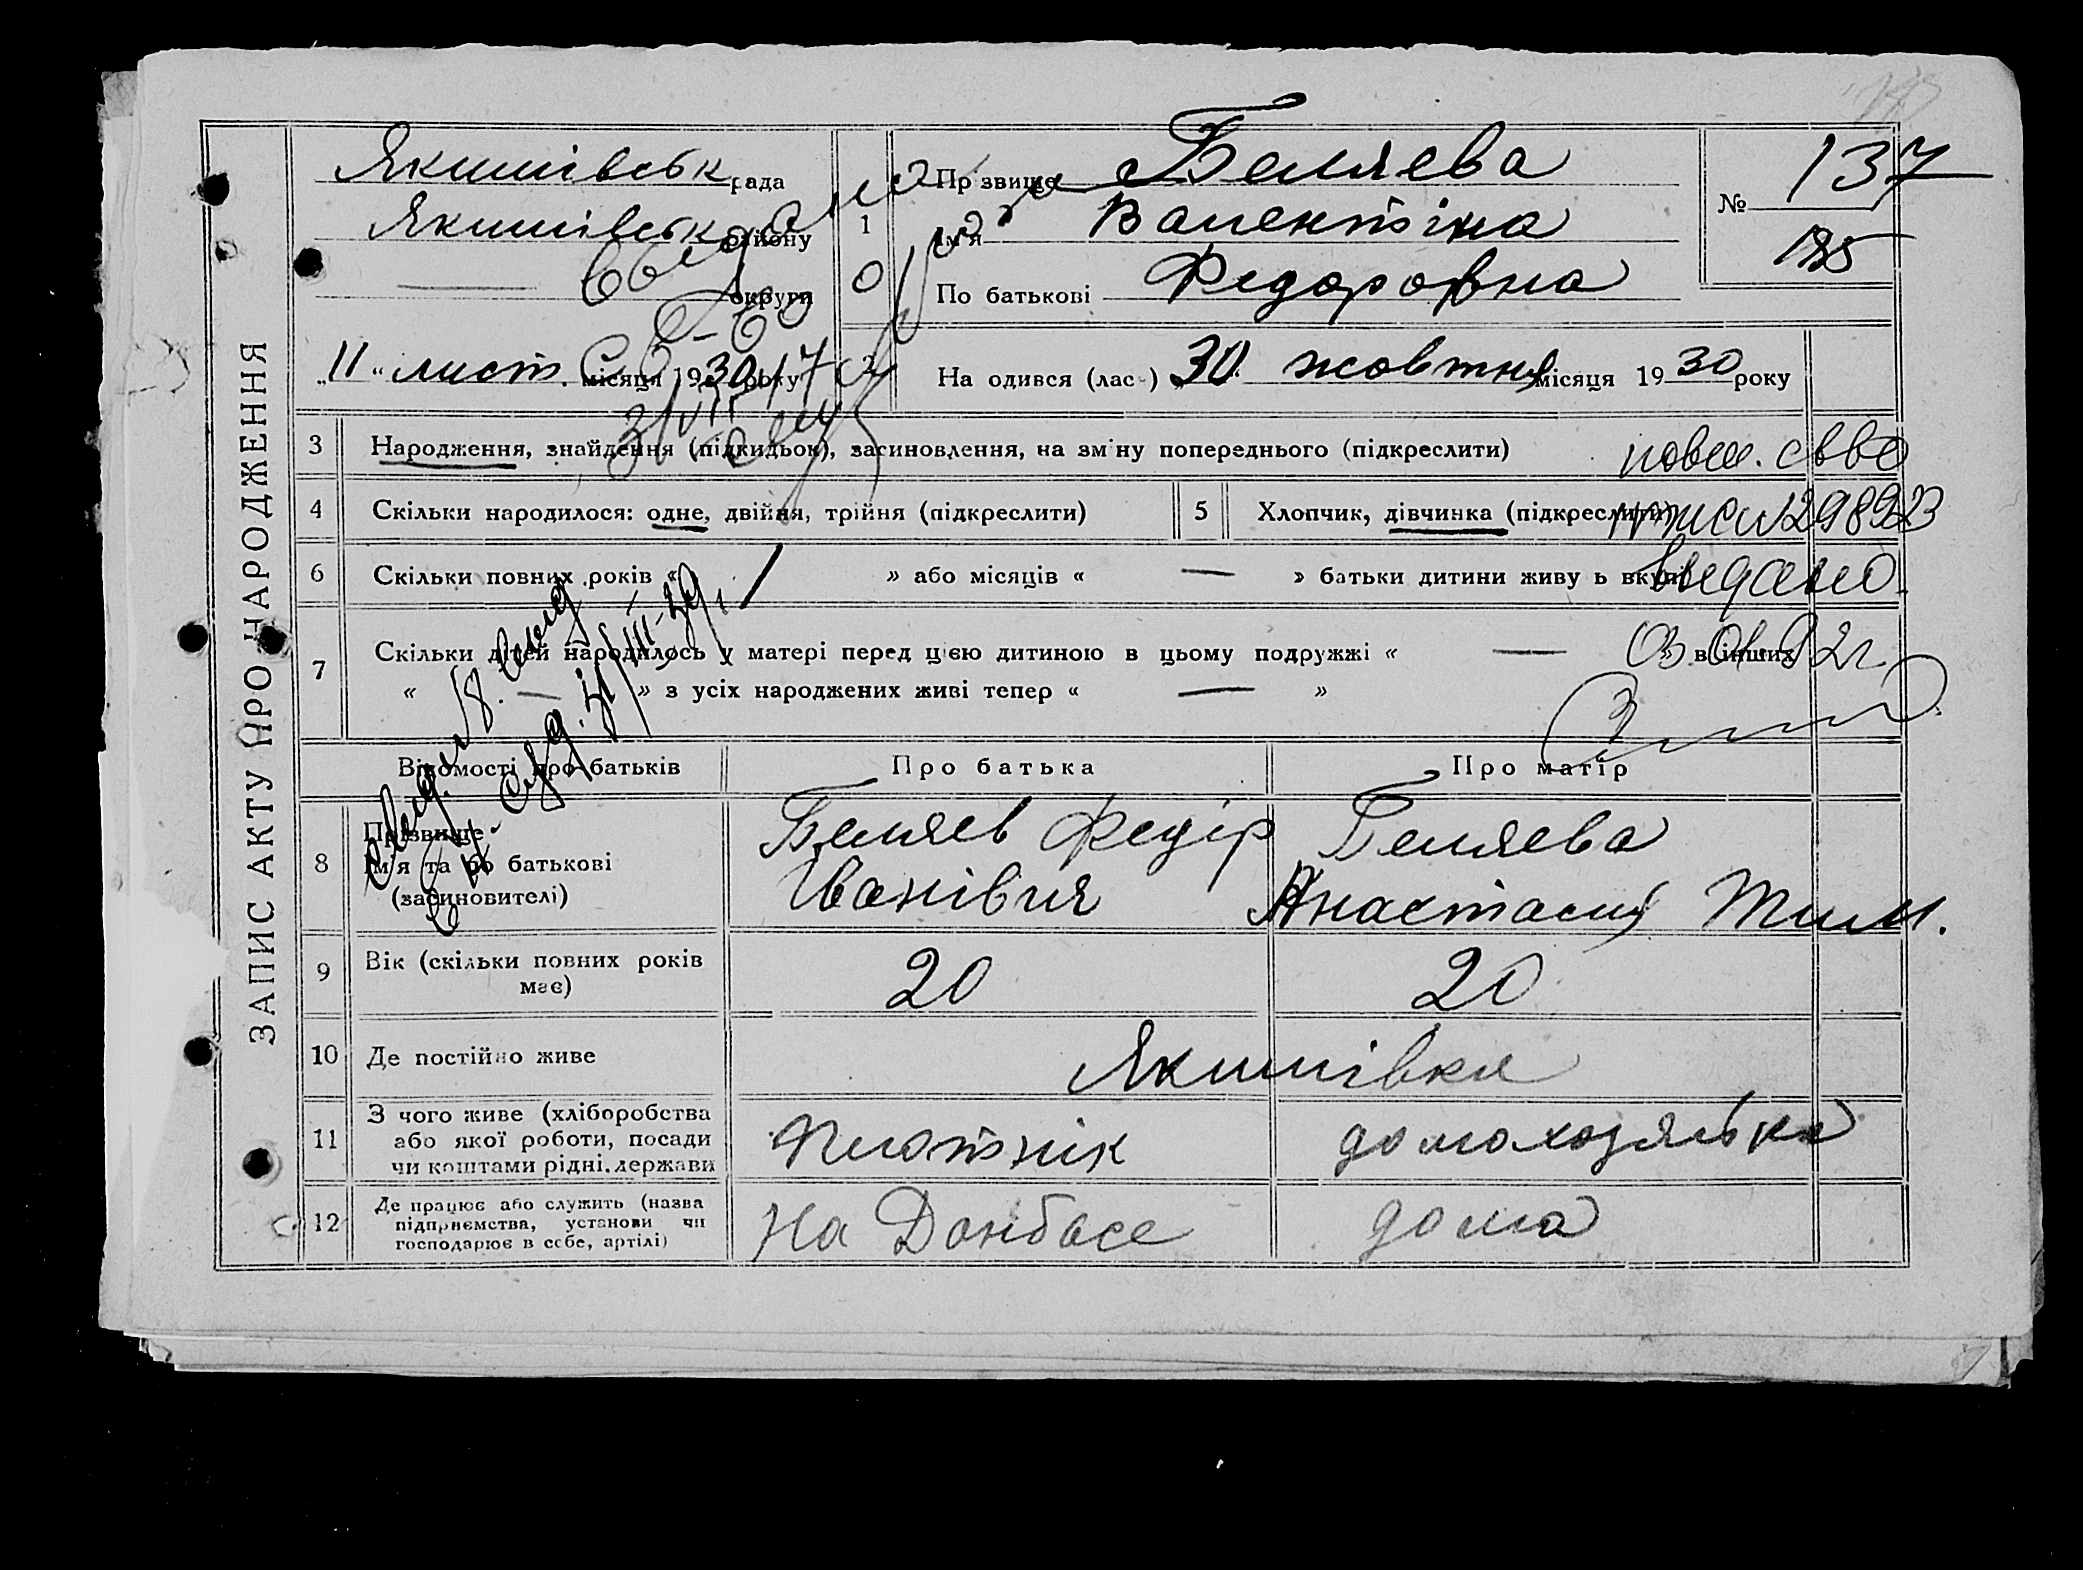 ЗАПИС АКТУ ПРО НАРОДЖЕННЯ
Якимівськ рада
Якимівськ району
округи
"11" лист. місяця 1930 року
1
Прізвище Беляева
Ім'я Валентіна
По батькові Федоровна
№ 137
195
2
Народився (лась) 30 жовтня місяця 1930 року
3 Народження, знайдення (підкидьок), засиновлення, на зміну попереднього (підкреслити)
4 Скільки народилося: одне, двійня, трійня (підкреслити)
5 Хлопчик, дівчинка (підкреслити)
6 Скільки повних років « 1 » або місяців « — » батьки дитини живуть вкупі
7 Скільки дітей народилось у матері перед цією дитиною в цьому подружжі « — » в інших
« — » з усіх народжених живі тепер « — »
повт. свво
298923
выдано
03.01.92г.
Відомості про батьків Про батька Про матір
8 Прізвище
Ім'я та по батькові
(засиновителі)
Беляев Федір
Іванівич
Беляева
Анастасия Тим.
9 Вік (скільки повних років має)
20 20
10 Де постійно живе
Якимівка
11 З чого живе (хліборобства
або якої роботи, посади
чи коштами рідні, держави
Плотнік домохозяйка
12 Де працює або служить (назва
підприємства, установи чи
господарює в себе, артілі)
На Донбасе дома